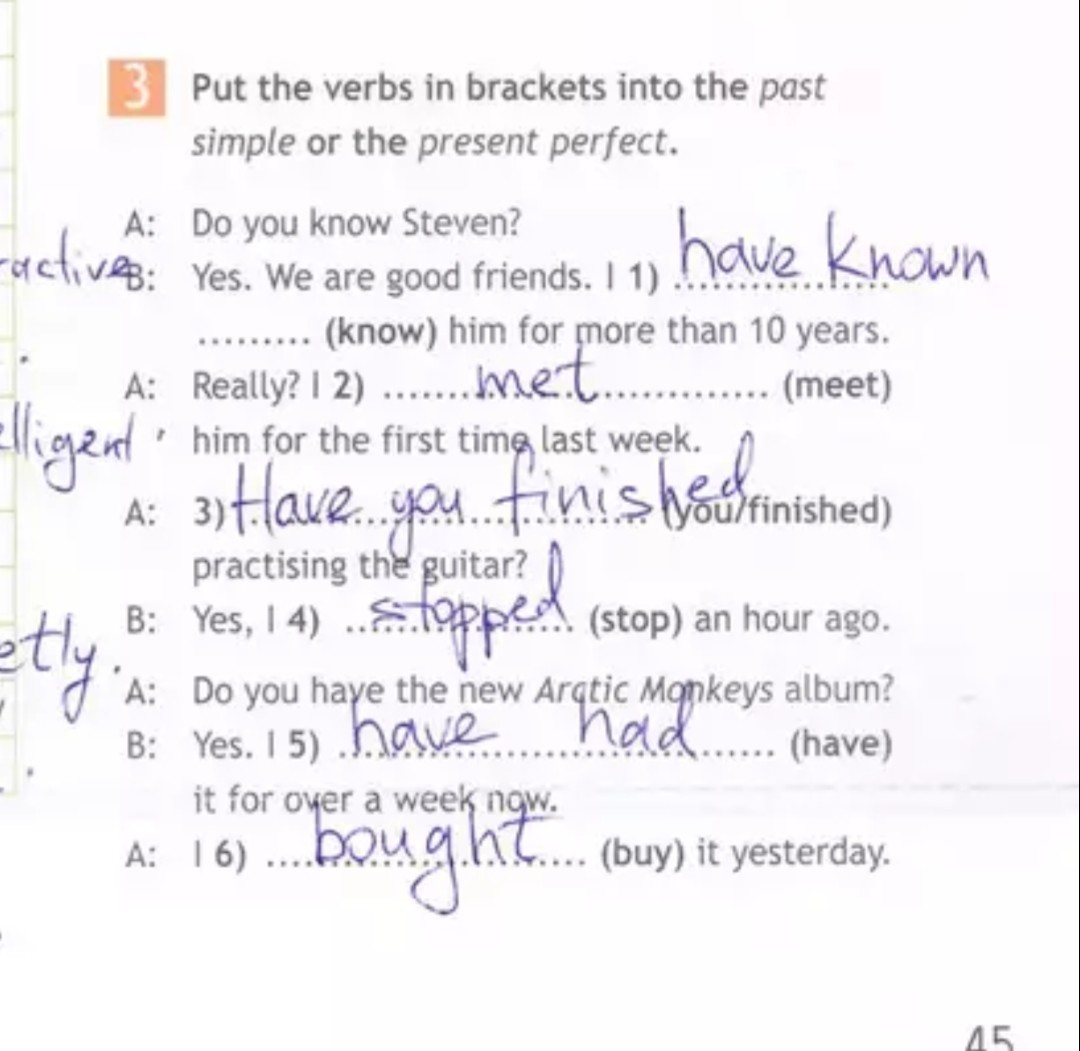 3 Put the verbs in brackets into the past
simple or the present perfect.
A: Do you know Steven?
ractive
B: Yes. We are good friends. I 1) have known
......... (know) him for more than 10 years.
A: Really? I 2) .......met.............. (meet)
elligent, him for the first time last week.
A: 3) Have you finished (you/finished)
practising the guitar?
B: Yes, I 4) ..stopped.. (stop) an hour ago.
etly.
A: Do you have the new Arctic Monkeys album?
B: Yes. I 5) .have had...... (have)
it for over a week now.
A: I 6) ....bought.... (buy) it yesterday.
45